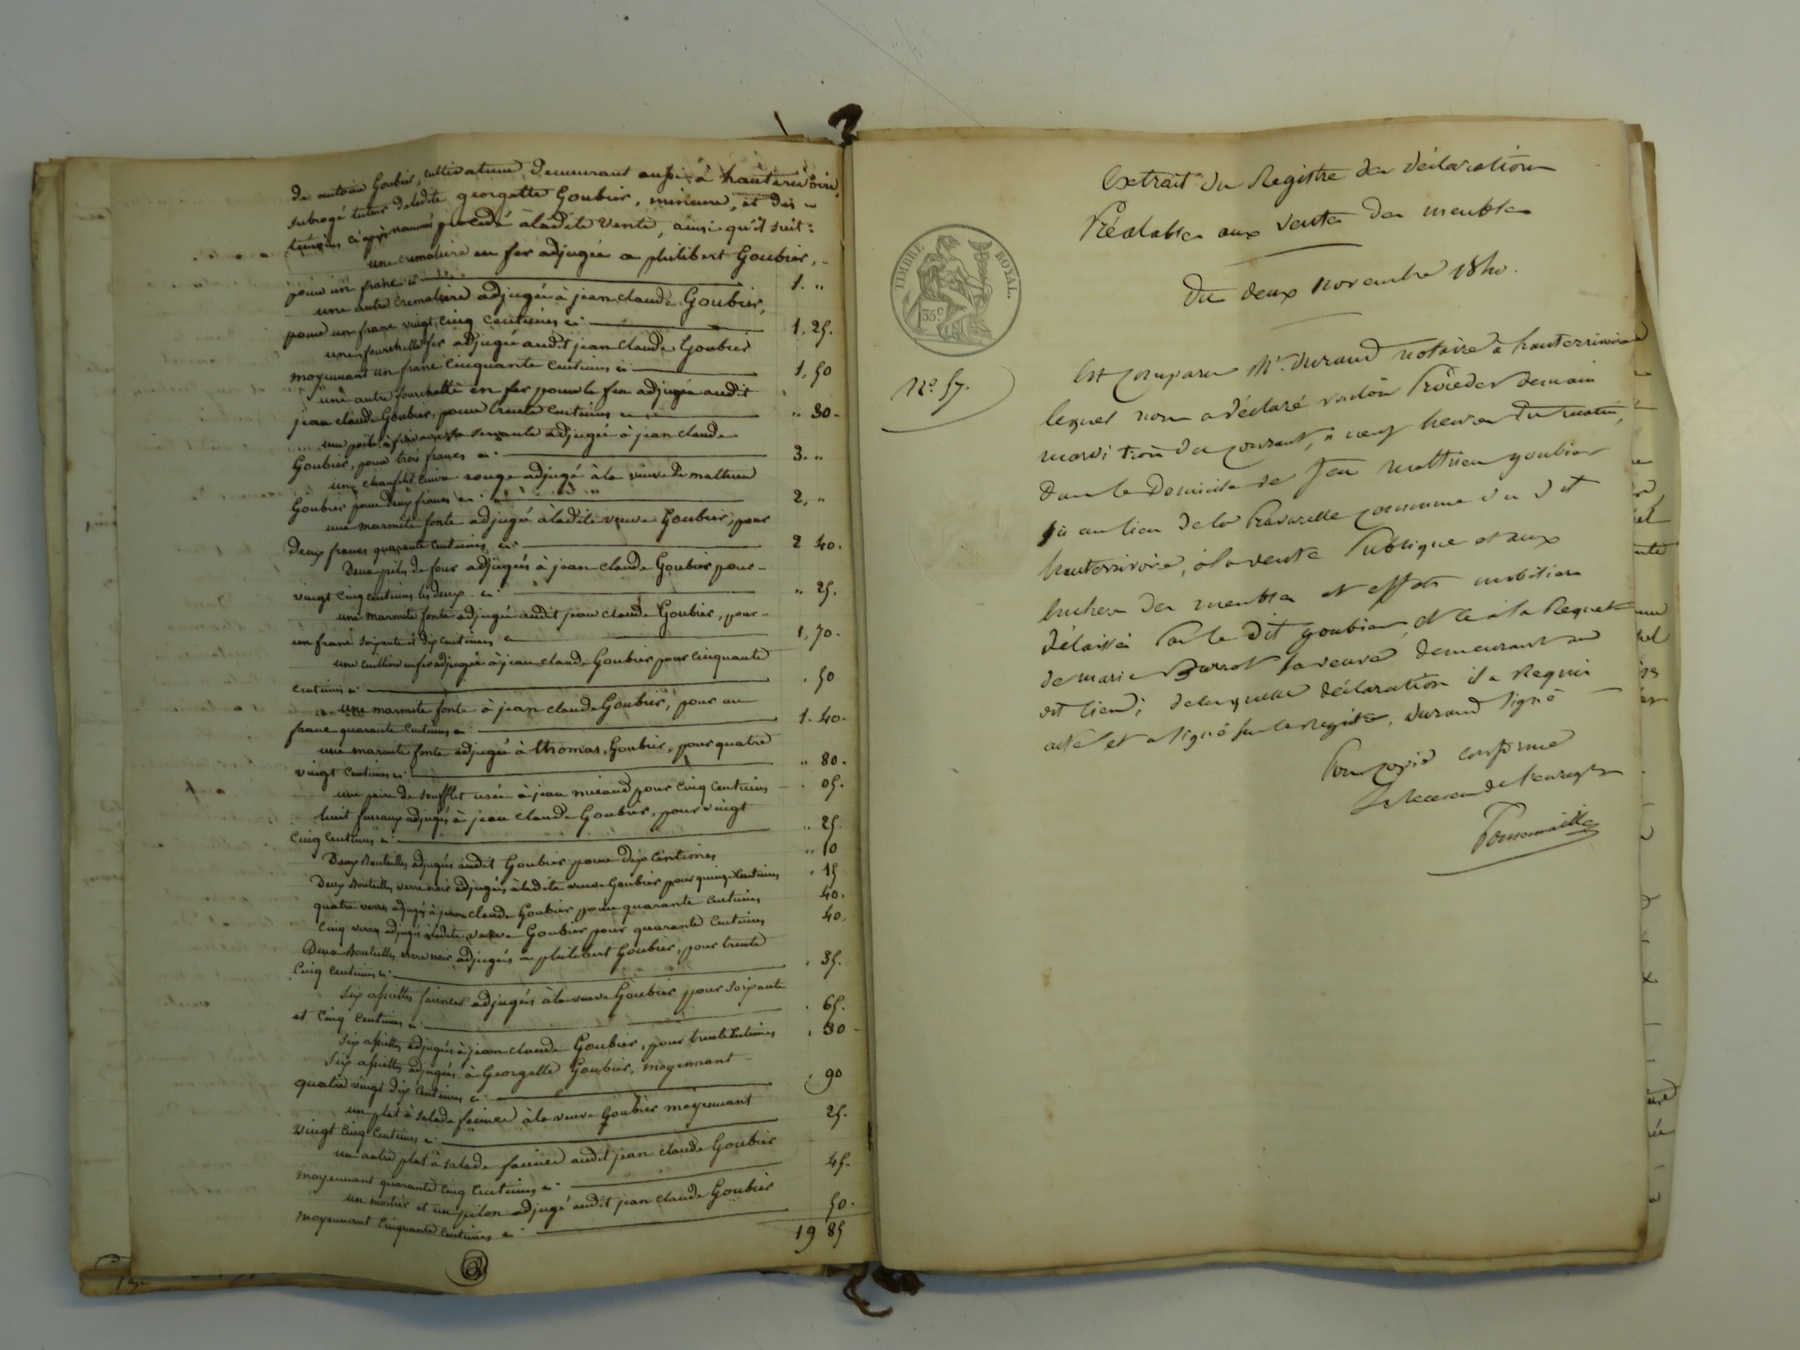 de antoine Goubier, cultivateur demeurant aussi à hauterivoire,
subrogé tuteur de ladite georgette Goubier, mineure, et des
témoins ci après nommés procédé à la dite vente, ainsi qu'il suit:
une cremalière en fer adjugée a philibert Goubier,
pour un franc ci 1. "
une autre cremalière adjugée à jean claude Goubier,
pour un franc vingt cinq centimes ci 1,25.
une fourchette fer adjugée audit jean claude Goubier
moyennant un franc cinquante centimes ci 1,50
une autre fourchette en fer pour le feu adjugée audit
jean claude Goubier, pour trente centimes " 30
une poële à frire avec sa servante adjugée à jean claude
Goubier, pour trois francs ci 3. "
une cuivre rouge adjugé à la veuve de mathieu
Goubier pour deux francs ci 2, "
une marmite fonte adjugée à la dite veuve Goubier, pour
deux francs quarante centimes ci 2 40.
Deux de four adjugés à jean claude Goubier pour
vingt cinq centimes les deux ci " 25.
une marmite fonte adjugée audit jean claude Goubier, pour
un franc soixante et dix centimes ci 1,70.
une cuillère en fer adjugée à jean claude Goubier pour cinquante
centimes ci . 50
une marmite fonte à jean claude Goubier, pour un
franc quarante centimes ci 1. 40.
une marmite fonte adjugée à thomas Goubier, pour quatre
vingt centimes ci " 80.
une paire de soufflet usée à jean pour cinq centimes . 05.
huit adjugés à jean claude Goubier, pour vingt
cinq centimes ci " 25.
Deux Bouteilles adjugées audit Goubier pour dix centimes " 10
Deux Bouteilles verre noir adjugées à ladite veuve Goubier pour quinze centimes . 15
quatre verres adjugés à jean claude Goubier pour quarante centimes 40.
Cinq verres adjugés à ladite veuve Goubier pour quarante centimes 40
Deux Bouteilles verre noir, adjugées a philibert Goubier, pour trente
Cinq centimes ci . 35.
Six assiettes faience adjugées à la veuve Goubier pour soixante
et cinq centimes ci . 65.
Six assiettes adjugées à jean claude Goubier, pour trente centimes . 30
Six assiettes adjugées à Georgette Goubier, moyennant
quatre vingt dix centimes ci . 90
un plat à salade faience à la veuve Goubier moyennant
vingt cinq centimes ci 25.
un autre plat à salade faience audit jean claude Goubier
moyennant quarante cinq centimes ci 45.
un mortier et un pilon adjugé audit jean claude Goubier
moyennant cinquante centimes ci 50.
19 85
Extrait du Registre des déclarations
Préalables aux ventes des meubles
Du deux novembre 1840.
TIMBRE ROYAL.
35 c.
N° 57.
Est comparu Mr. Durand notaire à hauterivoire
lequel nous a déclaré vouloir Procéder demain
mardi trois du courant, à neuf heures du matin,
dans le Domicile de feu Mathieu goubier
sis au lieu de la commune du dit
hauterivoire, à la vente Publique et aux
Enchères des meubles et effets mobiliers
délaissés Par le dit goubier, et ce à la Requête
de marie sa veuve demeurant au
dit lieu; de laquelle déclaration il a Requis
acte et a signé sur le registre. Durand signé
Pour copie conforme
Le Receveur de l'enregistrement